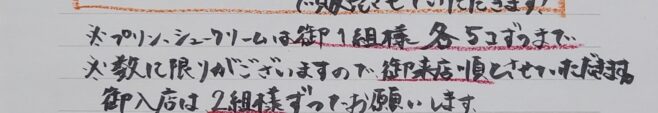 させていただきます!
※プリン、シュークリームは御1組様 各5コずつまで
※数に限りがございますので御来店順とさせていただきます。
御入店は2組様ずつでお願いします